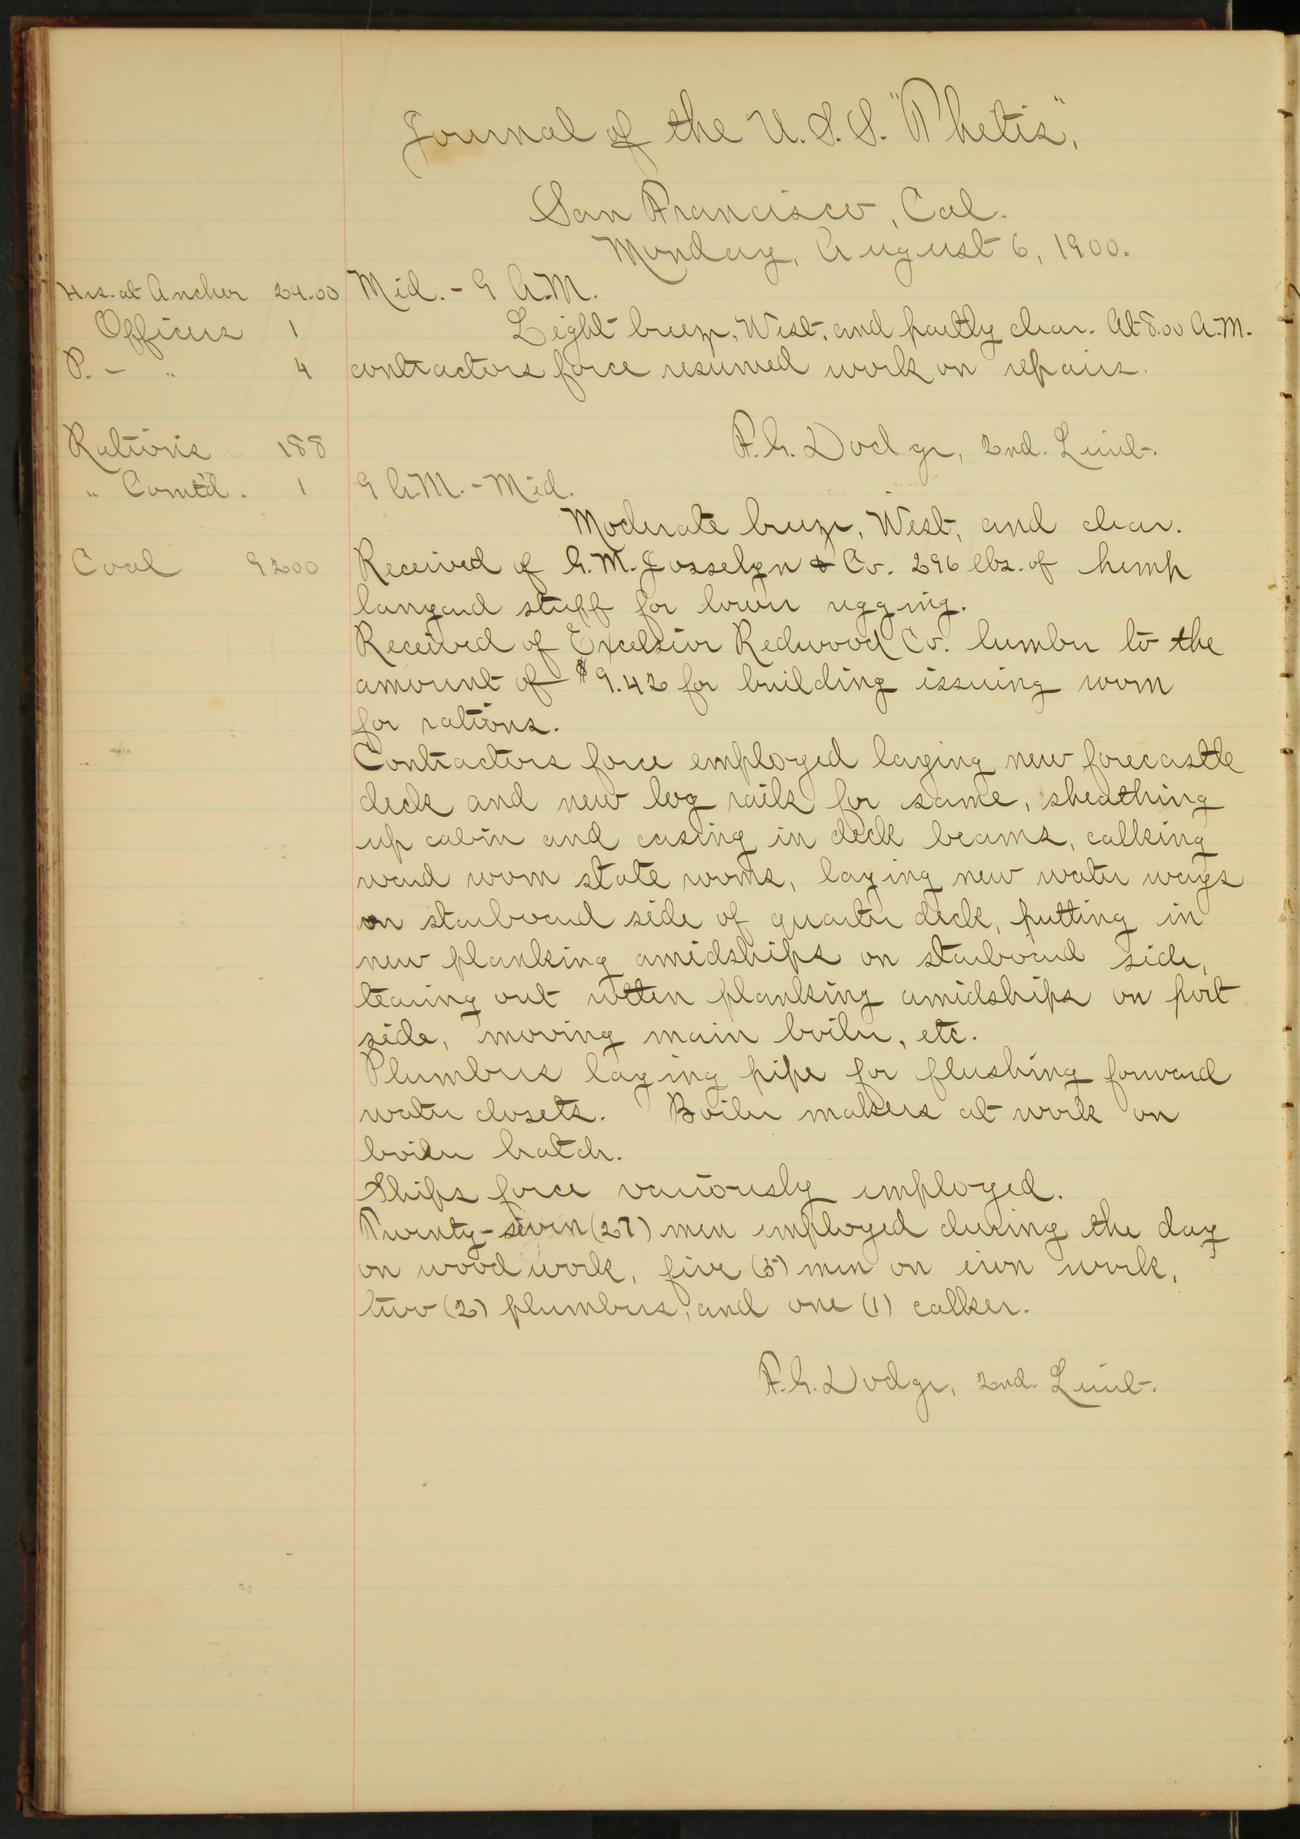 Journal of the U.S.S. "Thetis",
San Francisco, Cal.
Monday, August 6, 1900.
Hrs. at Anchor 24.00
Officers 1
P. - " 4
Rations 188
" Comt'd. 1
Coal 9200
Mid. - 9 A.M.
Light breeze, West, and partly clear. At 8.00 A.M.
contractors force resumed work on repairs.
F.G. Dodge, 2nd. Lieut.
9 A.M. - Mid.
Moderate breeze, West, and clear.
Received of G.M. Josselyn & Co. 296 lbs. of hemp
lanyard stuff for lower rigging.
Received of Excelsior Redwood Co. lumber to the
amount of $9.42 for building issuing room
for rations.
Contractors force employed laying new forecastle
deck and new log rails for same, sheathing
up cabin and casing in deck beams, calking
ward room state rooms, laying new water ways
on starboard side of quarter deck, putting in
new planking amidships on starboard side,
tearing out rotten planking amidships on port
side, moving main boiler, etc.
Plumbers laying pipe for flushing forward
water closets. Boiler makers at work on
boiler hatch.
Ships force variously employed.
Twenty-seven (27) men employed during the day
on wood work, five (5) men on iron work,
two (2) plumbers, and one (1) calker.
F.G. Dodge, 2nd. Lieut.